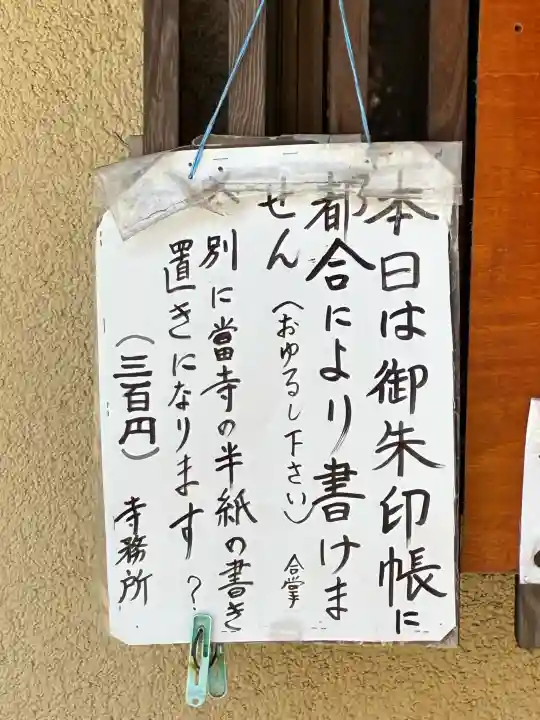 本日は御朱印帳に
都合により書けま
せん（おゆるし下さい）合掌
別に當寺の半紙の書き
置きになります？
（三百円）寺務所